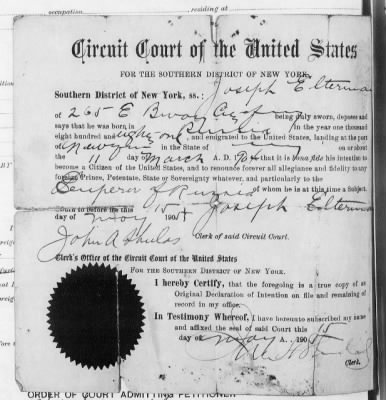 occupation. residing at
Circuit Court of the United States
FOR THE SOUTHERN DISTRICT OF NEW YORK.
Joseph Elterman
Southern District of New York, ss.:
of 265 E Bway City being duly sworn, deposes and
says that he was born in Russia in the year one thousand
eight hundred and eighty one, and emigrated to the United States, landing at the port
of New York in the State of on or about
the 11 day of March A. D. that it is bona fide his intention to
become a Citizen of the United States, and to renounce forever all allegiance and fidelity to any
foreign Prince, Potentate, State or Sovereignty whatever, and particularly to the
Emperor of Russia of whom he is at this time a Subject.
Sworn to before this 15
day of May 190 Joseph Elterman
John A Shields Clerk of said Circuit Court.
Clerk's Office of the Circuit Court of the United States
FOR THE SOUTHERN DISTRICT OF NEW YORK.
I hereby Certify, that the foregoing is a true copy of an
Original Declaration of Intention on file and remaining of
record in my office.
In Testimony Whereof, I have hereunto subscribed my name
and affixed the seal of said Court this 15
day of May A.. 190
Clerk.
ORDER OF COURT ADMITTING PETITIONER